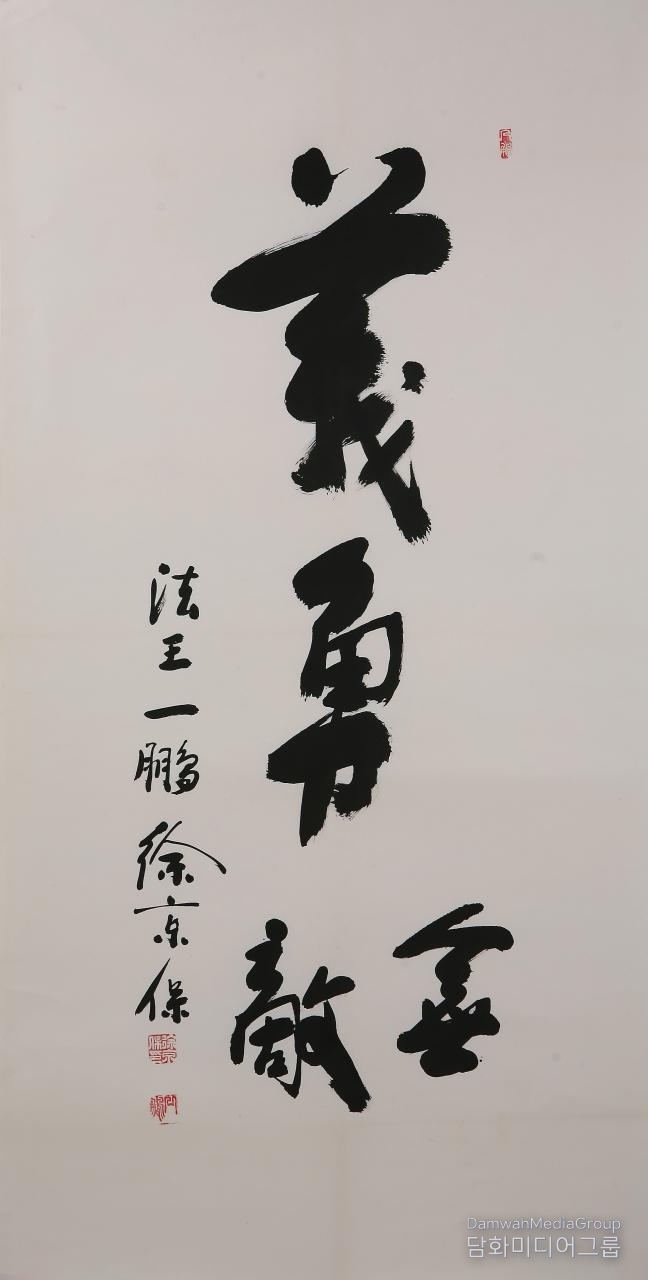 義勇
無敵
法王一鵬徐京保
DamwahMediaGroup
담화미디어그룹